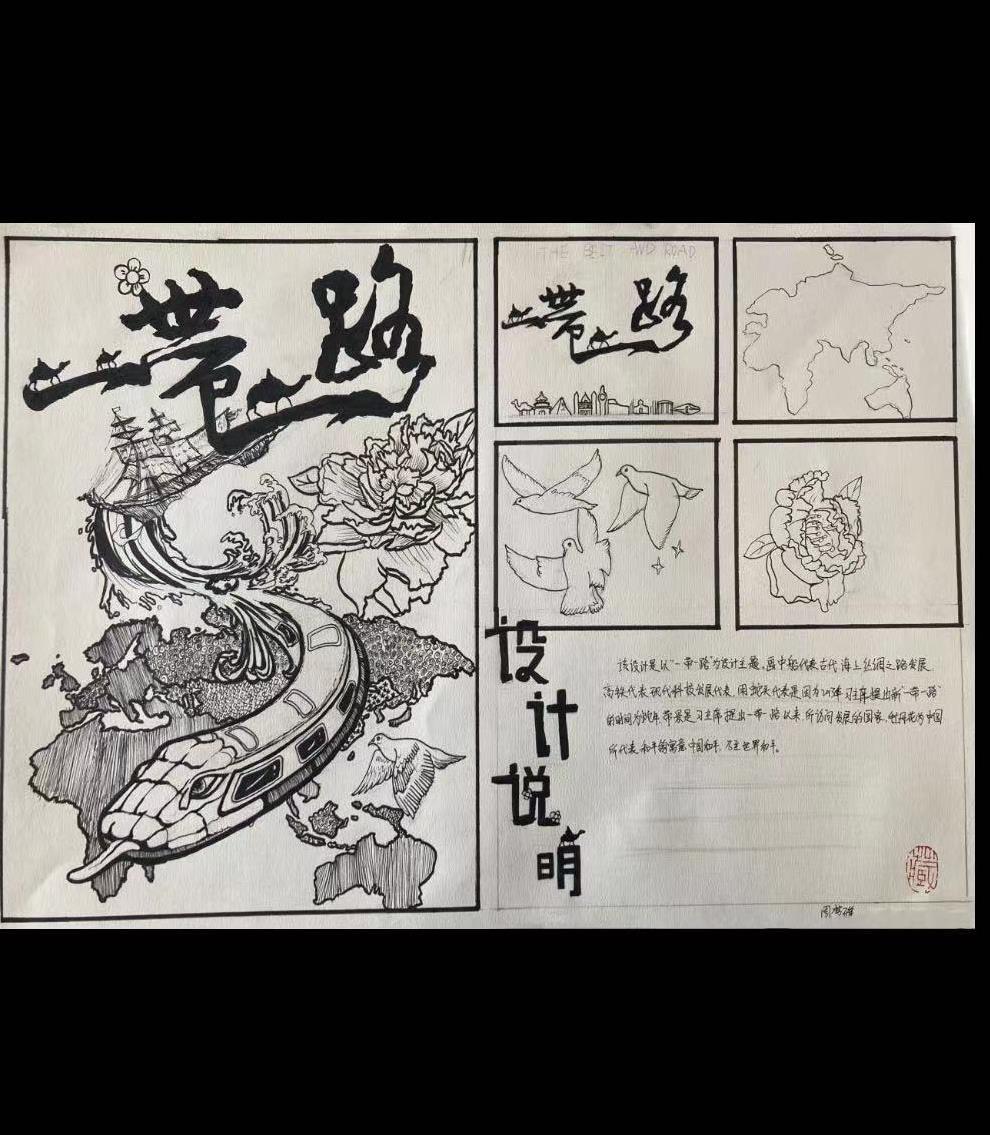 一带一路
THE BEST AND ROAD
一带一路
设计说明
该设计是以"一带一路"为设计主题，画中船代表古代海上丝绸之路发展
高铁代表现代科技发展代表，用蛇头代表是因为2013年习主席提出新"一带一路"
的时间为蛇年，背景是习主席提出一带一路以来所访问发展的国家，牡丹花为中国
所代表，和平鸽寓意中国和平，乃至世界和平。